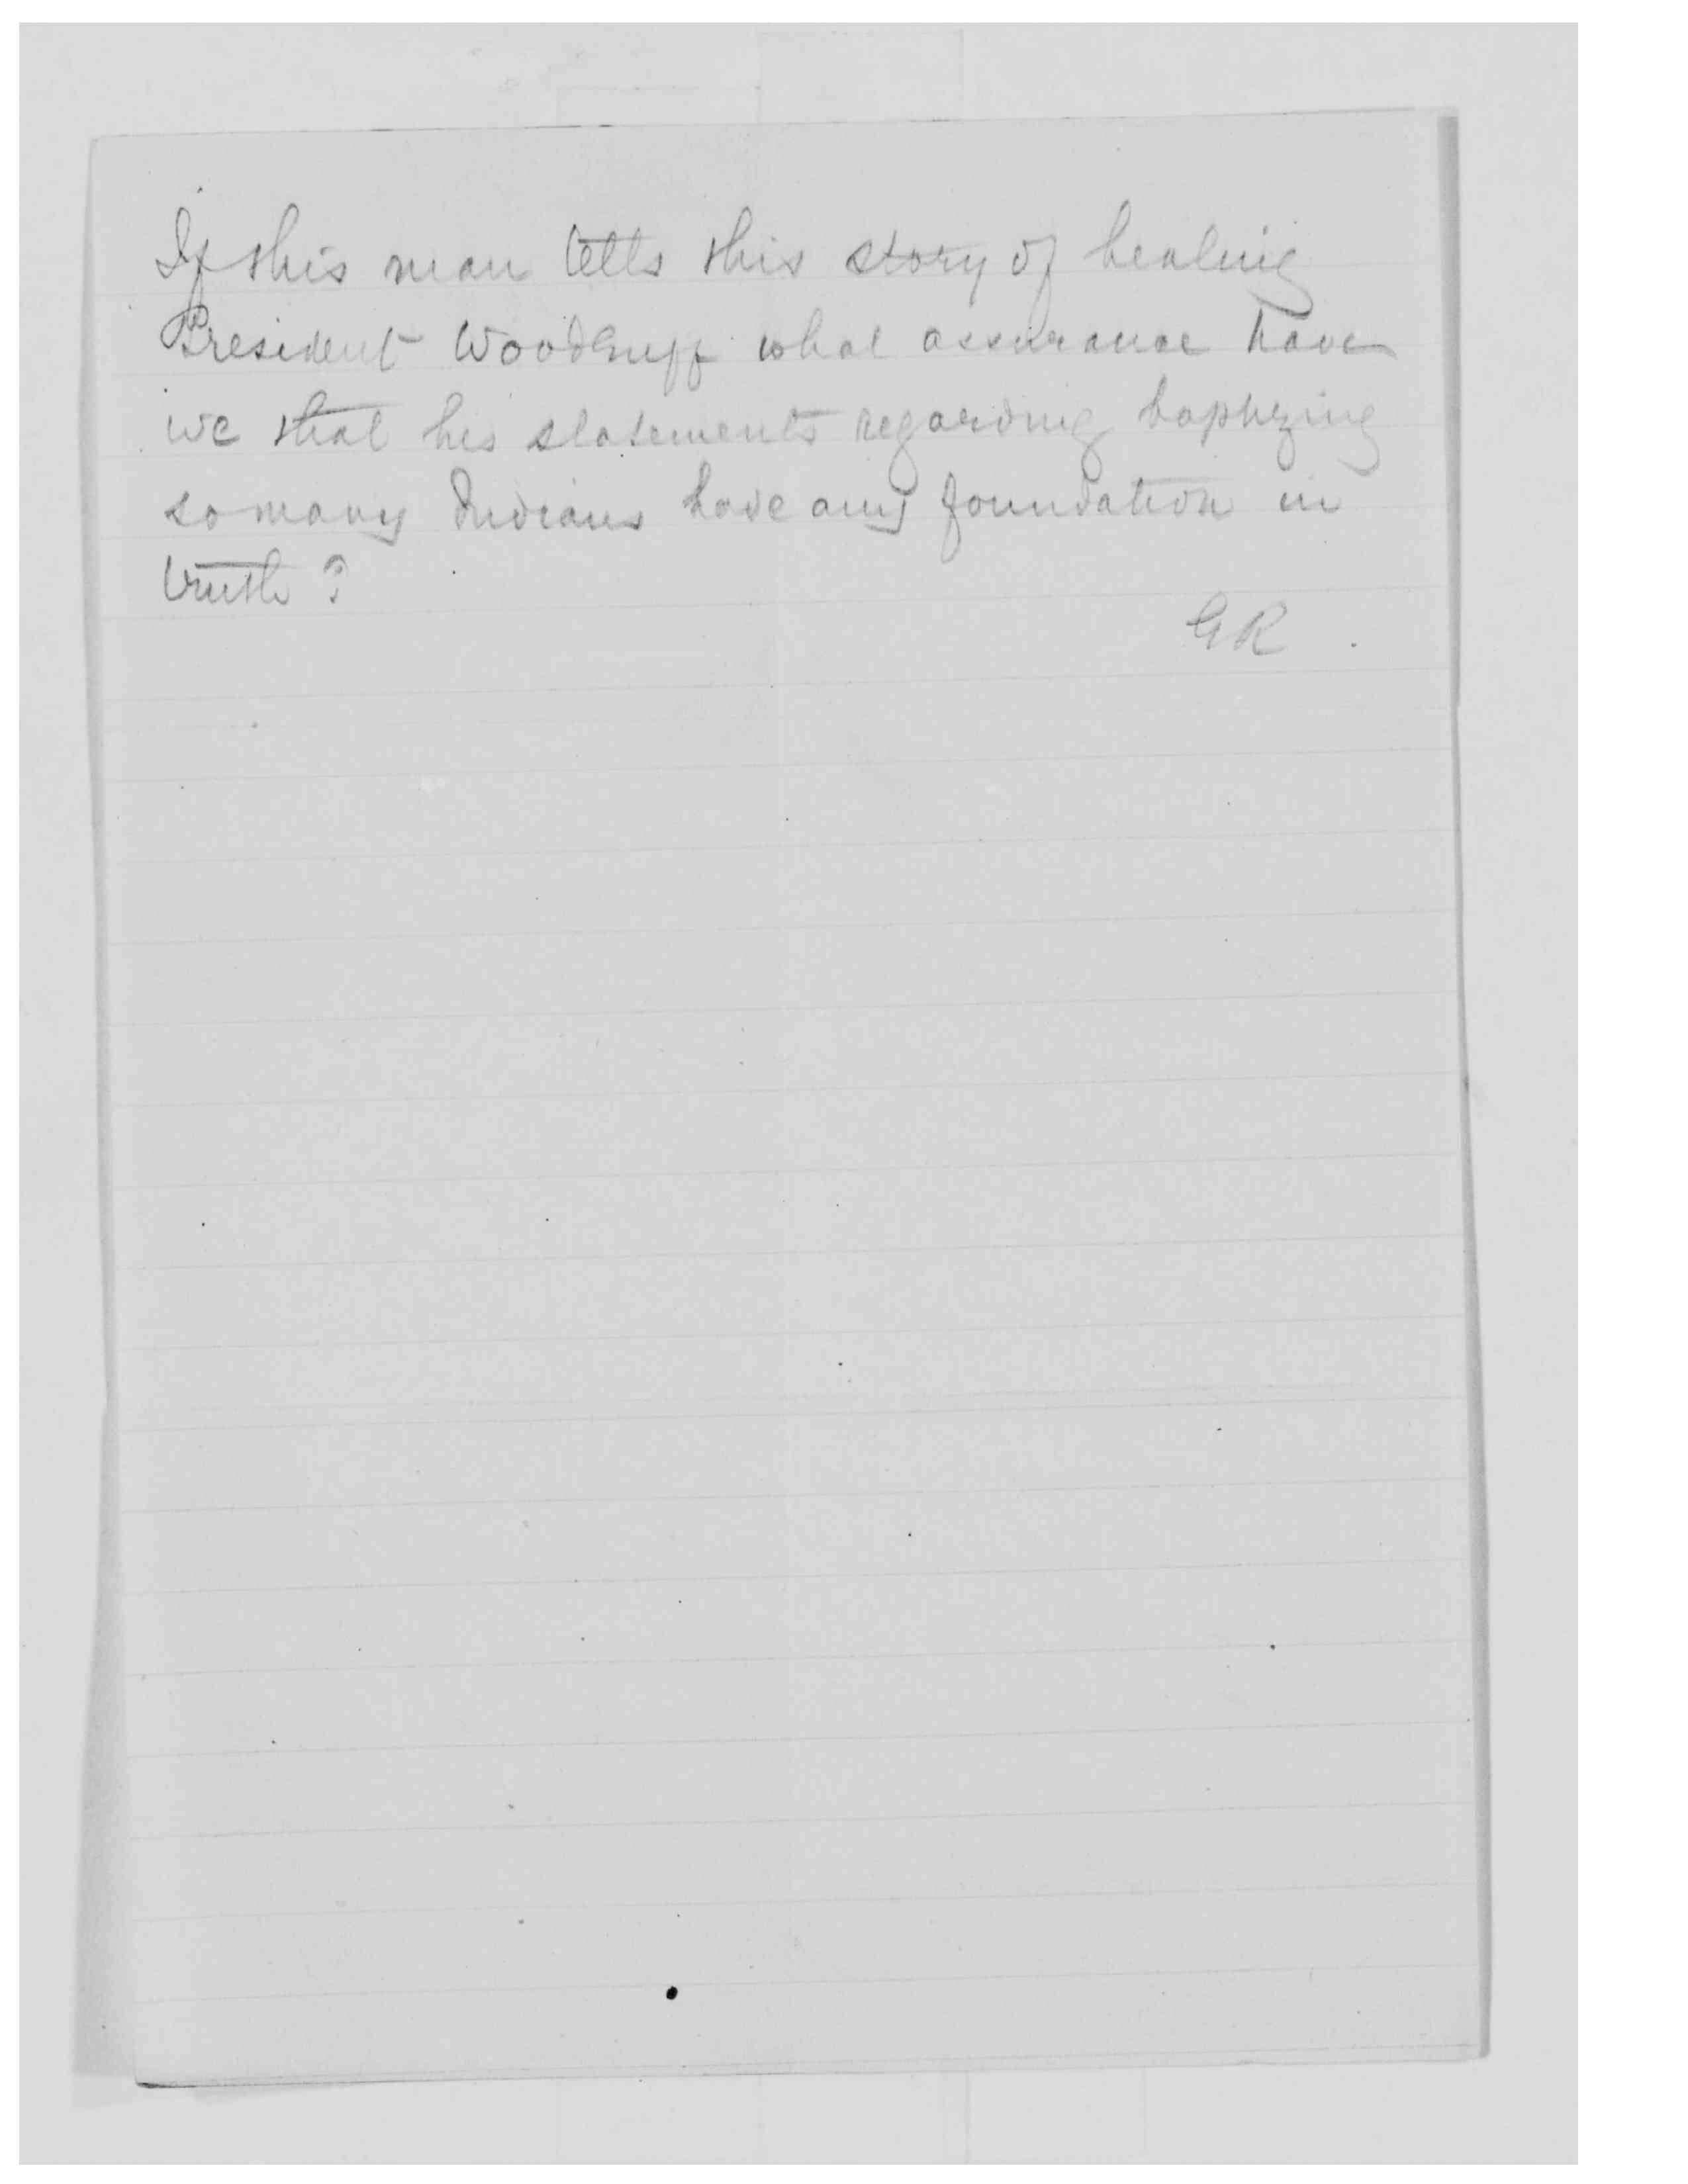 If this man tells this story of healing
President Woodruff what assurance have
we that his statements regarding baptizing
so many Indians have any foundation in
truth?
GR